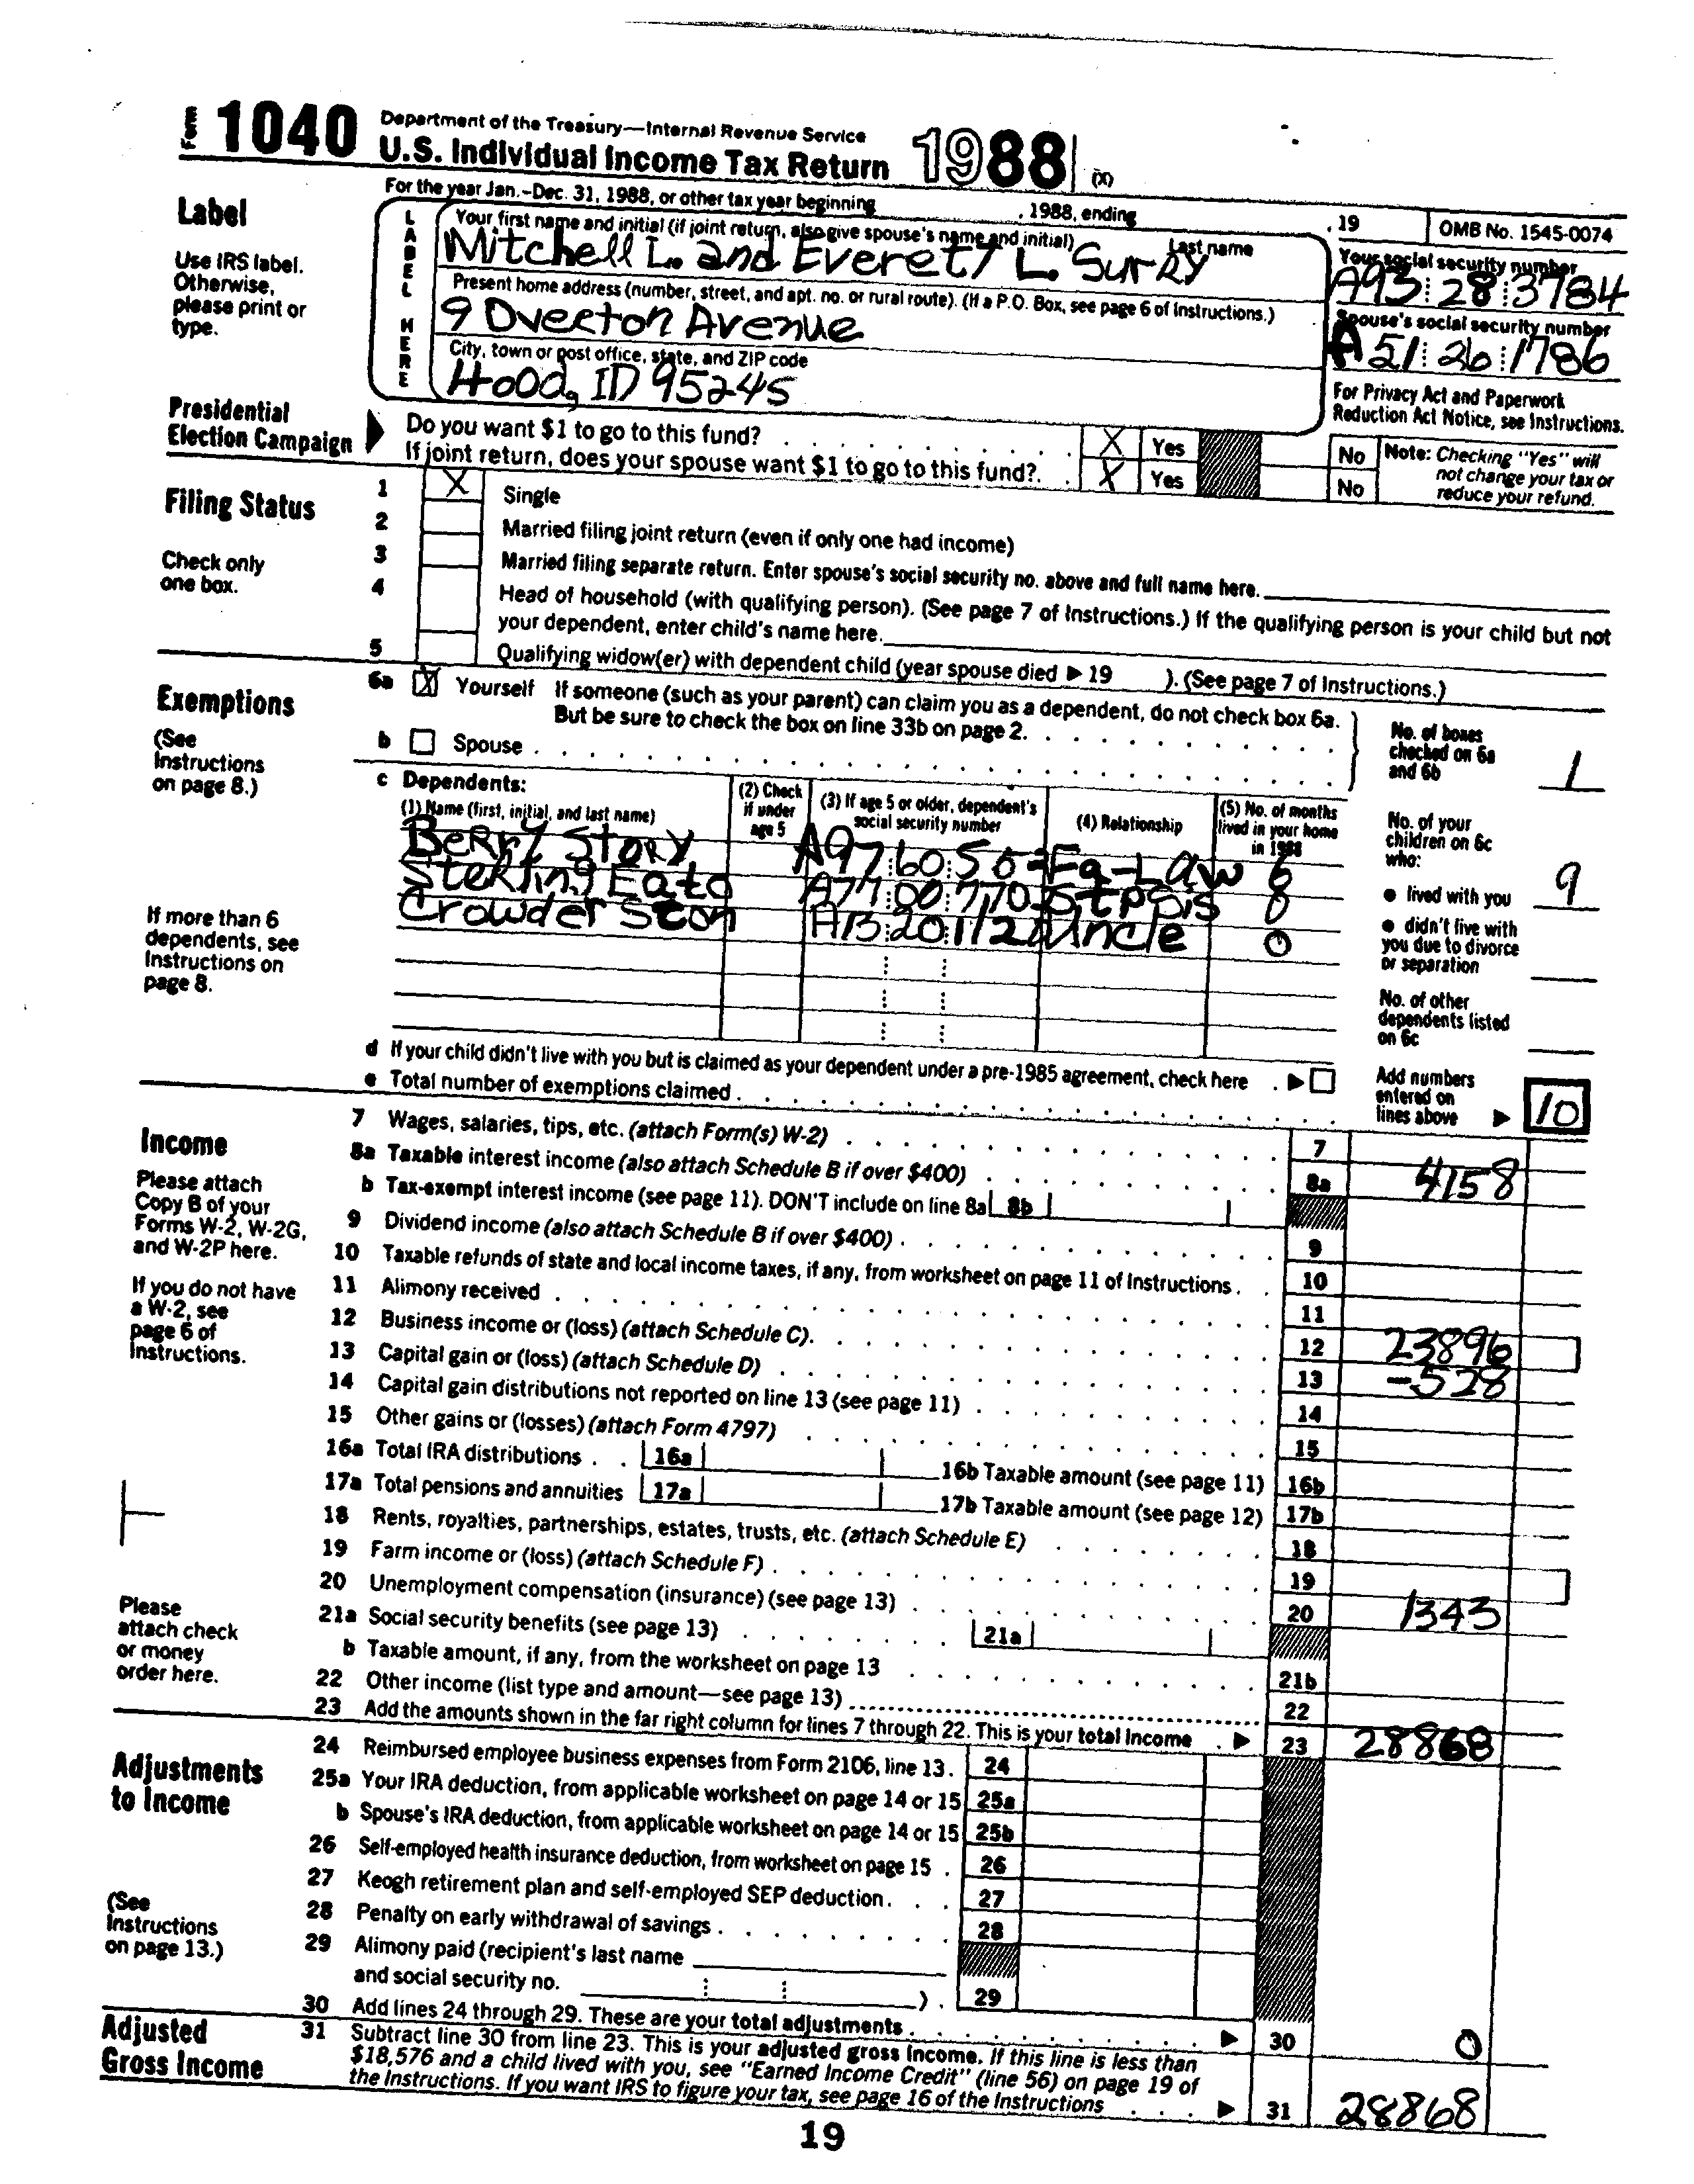 Form 1040 Department of the Treasury—Internal Revenue Service
U.S. Individual Income Tax Return 1988 (X)
For the year Jan.–Dec. 31, 1988, or other tax year beginning , 1988, ending , 19 OMB No. 1545-0074
Label
Use IRS label.
Otherwise,
please print or
type.
LABEL HERE
Your first name and initial (if joint return, also give spouse's name and initial) Last name
Mitchell L. and Everett L. Surry
Your social security number
A93 28 3784
Present home address (number, street, and apt. no. or rural route). (If a P.O. Box, see page 6 of Instructions.)
9 Overton Avenue
Spouse's social security number
A51 26 1786
City, town or post office, state, and ZIP code
Hood, ID 95245
For Privacy Act and Paperwork
Reduction Act Notice, see Instructions.
Presidential
Election Campaign
Do you want $1 to go to this fund? X Yes No
If joint return, does your spouse want $1 to go to this fund? X Yes No
Note: Checking "Yes" will
not change your tax or
reduce your refund.
Filing Status
Check only
one box.
1 X Single
2 Married filing joint return (even if only one had income)
3 Married filing separate return. Enter spouse's social security no. above and full name here.
4 Head of household (with qualifying person). (See page 7 of Instructions.) If the qualifying person is your child but not
your dependent, enter child's name here.
5 Qualifying widow(er) with dependent child (year spouse died ▶ 19 ). (See page 7 of Instructions.)
Exemptions
(See
Instructions
on page 8.)
6a X Yourself If someone (such as your parent) can claim you as a dependent, do not check box 6a.
But be sure to check the box on line 33b on page 2.
b Spouse
No. of boxes
checked on 6a
and 6b 1
c Dependents:
(1) Name (first, initial, and last name)
(2) Check
if under
age 5
(3) If age 5 or older, dependent's
social security number
(4) Relationship
(5) No. of months
lived in your home
in 1988
Berry Story A97 60 Fa-Law 6
Sterling Eato A77 00 770 0
Crowder Ston A13 20 112 Uncle 0
If more than 6
dependents, see
Instructions on
page 8.
No. of your
children on 6c
who:
● lived with you 9
● didn't live with
you due to divorce
or separation
No. of other
dependents listed
on 6c
d If your child didn't live with you but is claimed as your dependent under a pre-1985 agreement, check here ▶
e Total number of exemptions claimed
Add numbers
entered on
lines above ▶ 10
Income
Please attach
Copy B of your
Forms W-2, W-2G,
and W-2P here.
If you do not have
a W-2, see
page 6 of
Instructions.
7 Wages, salaries, tips, etc. (attach Form(s) W-2) 7
8a Taxable interest income (also attach Schedule B if over $400) 8a 4158
b Tax-exempt interest income (see page 11). DON'T include on line 8a 8b
9 Dividend income (also attach Schedule B if over $400) 9
10 Taxable refunds of state and local income taxes, if any, from worksheet on page 11 of Instructions 10
11 Alimony received 11
12 Business income or (loss) (attach Schedule C) 12 23896
13 Capital gain or (loss) (attach Schedule D) 13 -528
14 Capital gain distributions not reported on line 13 (see page 11) 14
15 Other gains or (losses) (attach Form 4797) 15
16a Total IRA distributions 16a 16b Taxable amount (see page 11) 16b
17a Total pensions and annuities 17a 17b Taxable amount (see page 12) 17b
18 Rents, royalties, partnerships, estates, trusts, etc. (attach Schedule E) 18
19 Farm income or (loss) (attach Schedule F) 19
20 Unemployment compensation (insurance) (see page 13) 20 1343
21a Social security benefits (see page 13) 21a
b Taxable amount, if any, from the worksheet on page 13 21b
22 Other income (list type and amount—see page 13) 22
23 Add the amounts shown in the far right column for lines 7 through 22. This is your total income ▶ 23 28868
Please
attach check
or money
order here.
Adjustments
to Income
(See
Instructions
on page 13.)
24 Reimbursed employee business expenses from Form 2106, line 13. 24
25a Your IRA deduction, from applicable worksheet on page 14 or 15 25a
b Spouse's IRA deduction, from applicable worksheet on page 14 or 15 25b
26 Self-employed health insurance deduction, from worksheet on page 15 26
27 Keogh retirement plan and self-employed SEP deduction 27
28 Penalty on early withdrawal of savings 28
29 Alimony paid (recipient's last name
and social security no. ) 29
30 Add lines 24 through 29. These are your total adjustments ▶ 30 0
Adjusted
Gross Income
31 Subtract line 30 from line 23. This is your adjusted gross income. If this line is less than
$18,576 and a child lived with you, see "Earned Income Credit" (line 56) on page 19 of
the Instructions. If you want IRS to figure your tax, see page 16 of the Instructions ▶ 31 28868
19